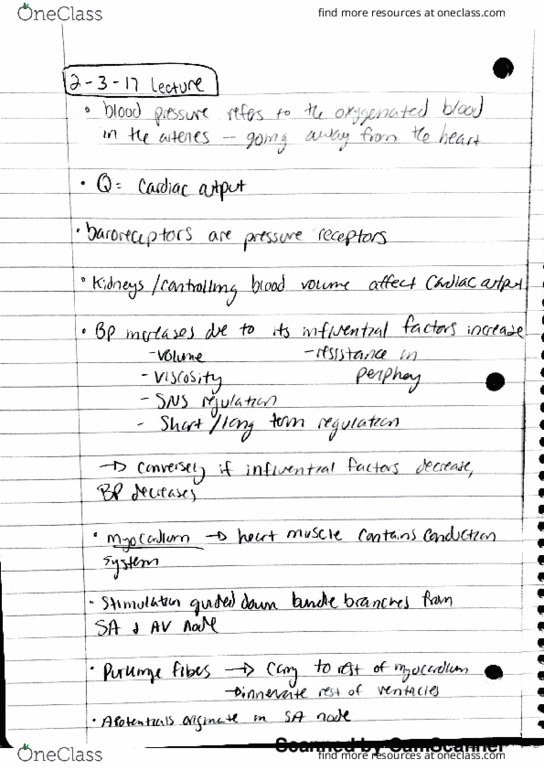 OneClass
find more resources at oneclass.com
2-3-17 Lecture
• blood pressure refes to the oxygenated blood
in the arteries – going away from the heart
• Q= Cardiac output
• baroreceptors are pressure receptors
• Kidneys/controlling blood volume affect Cardiac output
• BP increases due to its influential factors increase
-Volume
-resistance in
- Viscosity
periphery
- SNS regulation
- Short/long term regulation
→ Conversely if influential factors decrease,
BP decreases
• myocardium → heart muscle contains conduction
system
- Stimulation guided down bundle branches from
SA & AV node
• Purkinje fibes → Carry to rest of myocardium
→innervate rest of ventricles
• Apotentials originate in SA node
Scanned by CamScanner
OneClass
find more resources at oneclass.com